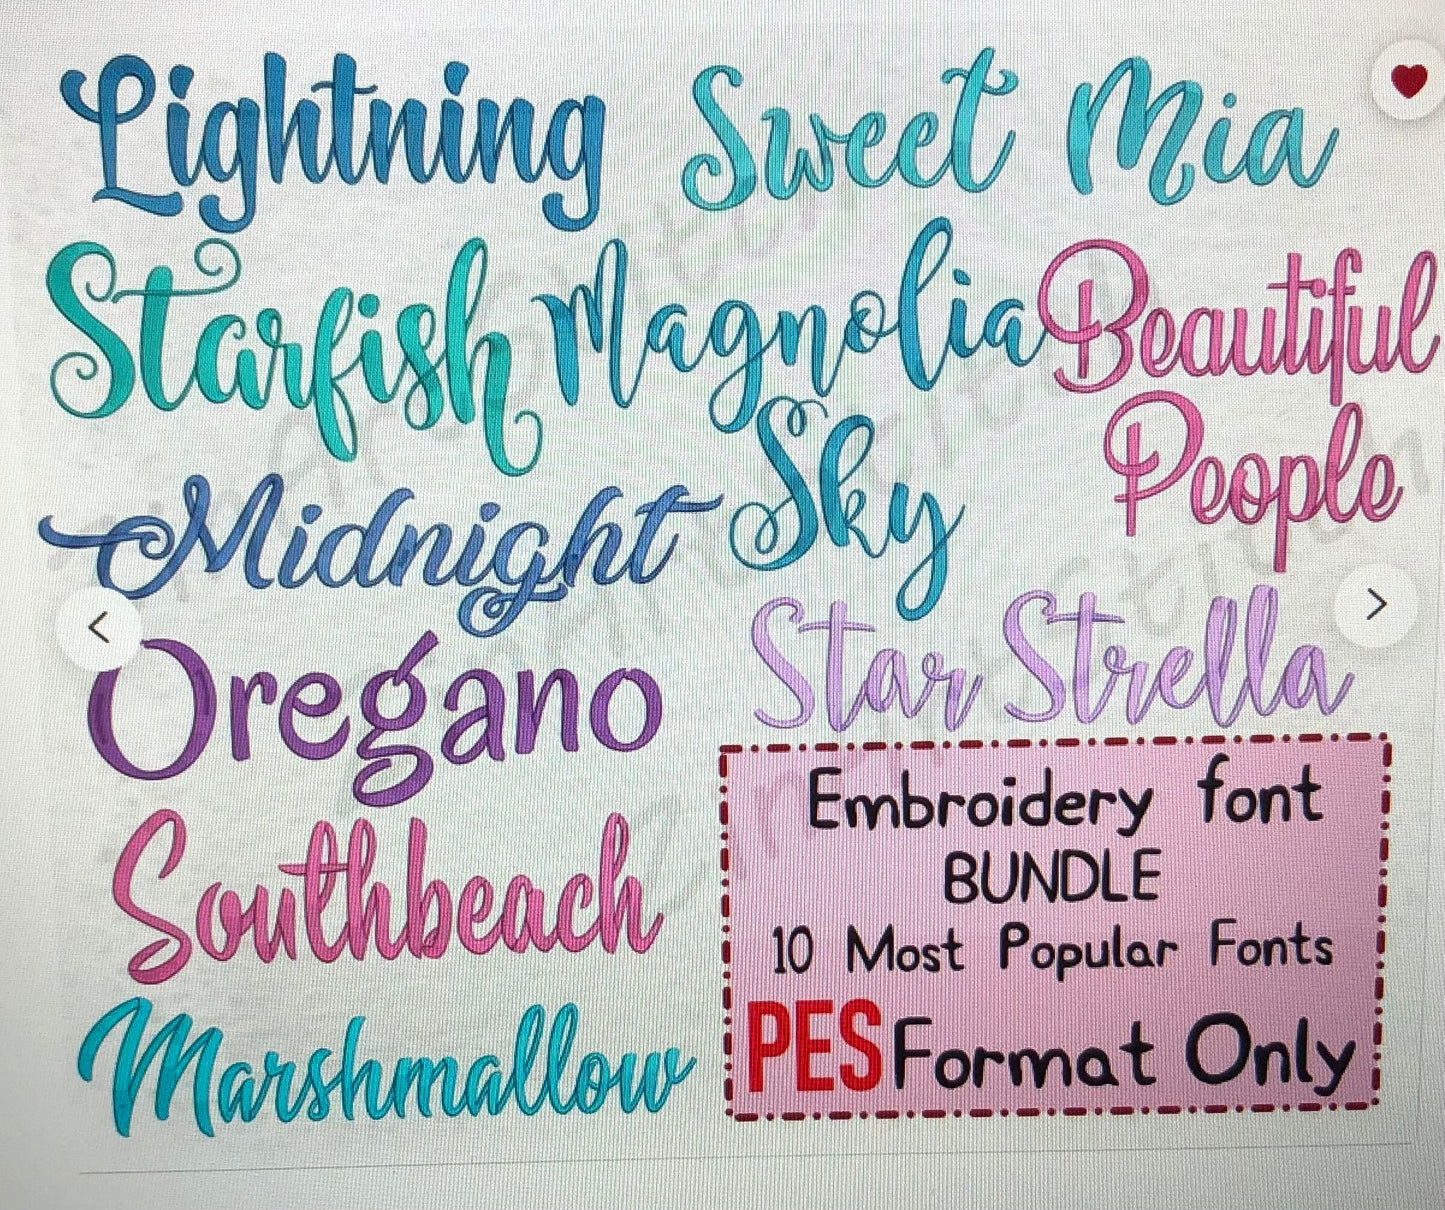 Lightning
Sweet Mia
Starfish
Magnolia Sky
Beautiful
People
Midnight
Star Strella
Oregano
Southbeach
Marshmallow
Embroidery font
BUNDLE
10 Most Popular Fonts
PES Format Only